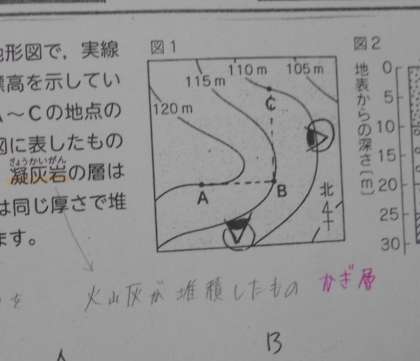 也形図で，実線
標高を示してい
A～Cの地点の
図に表したもの
ぎょうかいがん
凝灰岩の層は
は同じ厚さで堆
ます。
図1
110 m
105 m
115 m
120 m
C
A
B
北
図2
地表からの深さ〔m〕
0
5
10
15
20
25
30
を
火山灰が堆積したもの かぎ層
B